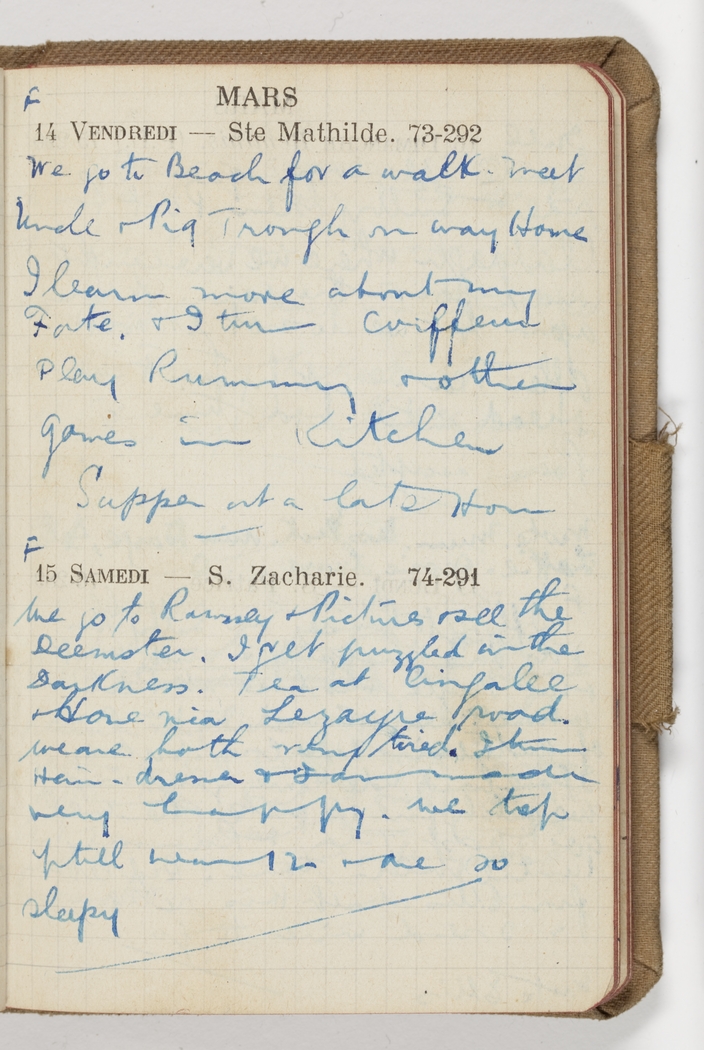 F
MARS
14 VENDREDI — Ste Mathilde. 73-292
We go to Beach for a walk. meet
Uncle & Pig Trough on way Home
I learn more about my
Forte. & I turn Coiffeur
Play Rummy & other
games in Kitchen
Supper at a late Hour
F
15 SAMEDI — S. Zacharie. 74-291
We go to Ramsey & Pictures & see the
Deemster. I get puzzled in the
Darkness. Tea at Cingalee
& Home via Lezayre road.
we are both very tired. I turn
Hair-dresser & I am made
very happy. we stop
up till near 12 & are so
sleepy